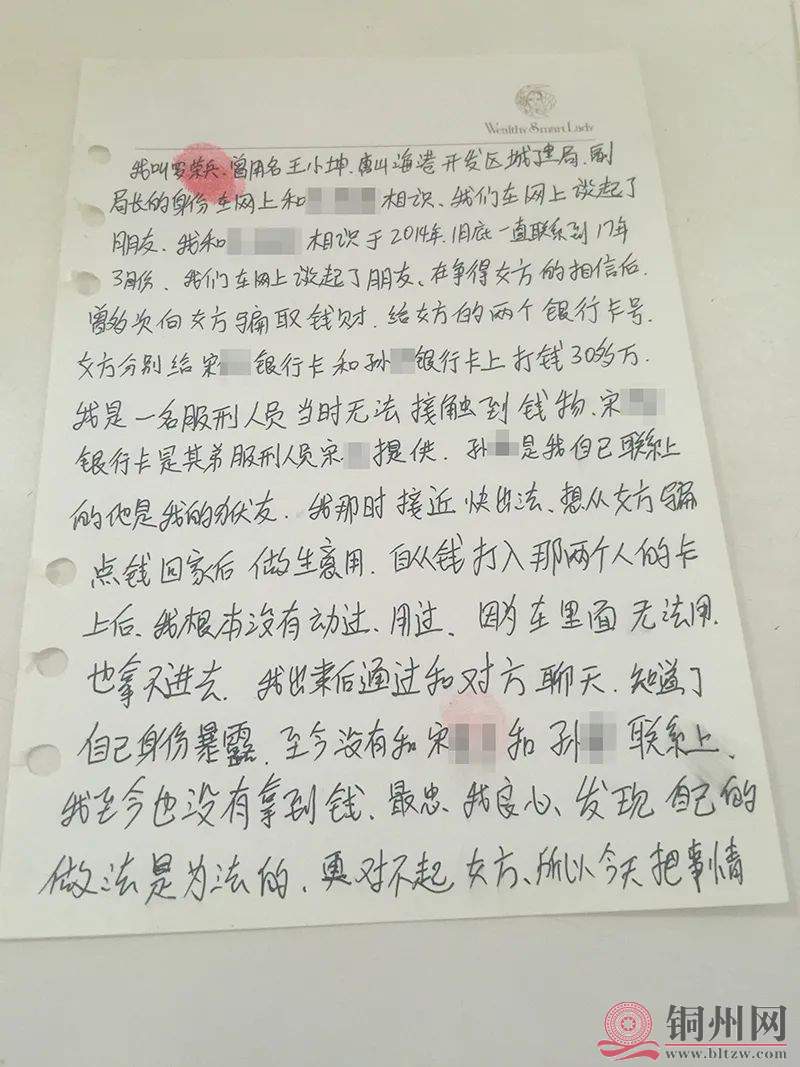 Wealthy Smart Lady
我叫罗荣兵、曾用名王小坤、唐山海港开发区城建局、副
局长的身份在网上和 相识、我们在网上谈起了
朋友、我和 相识于2014年、旧底一直联系到17年
3月份、我们在网上谈起了朋友、在争得女方的相信后、
曾多次向女方骗取钱财、给女方的两个银行卡号、
女方分别给宋 银行卡和孙 银行卡上打钱30多万、
我是一名服刑人员当时无法接触到钱物、宋
银行卡是其弟服刑人员宋 提供、孙 是我自己联系上
的他是我的狱友、我那时接近快出法、想从女方骗
点钱回家后做生意用、自从钱打入那两个人的卡
上后、我根本没有动过、用过、因为在里面无法用、
也拿不进去、我出来后通过和对方聊天、知道了
自己身份暴露、至今没有和宋 和孙 联系上、
我至今也没有拿到钱、最忠、我良心、发现自己的
做法是为法的、更对不起女方、所以今天把事情
铜州网
www.bltzw.com